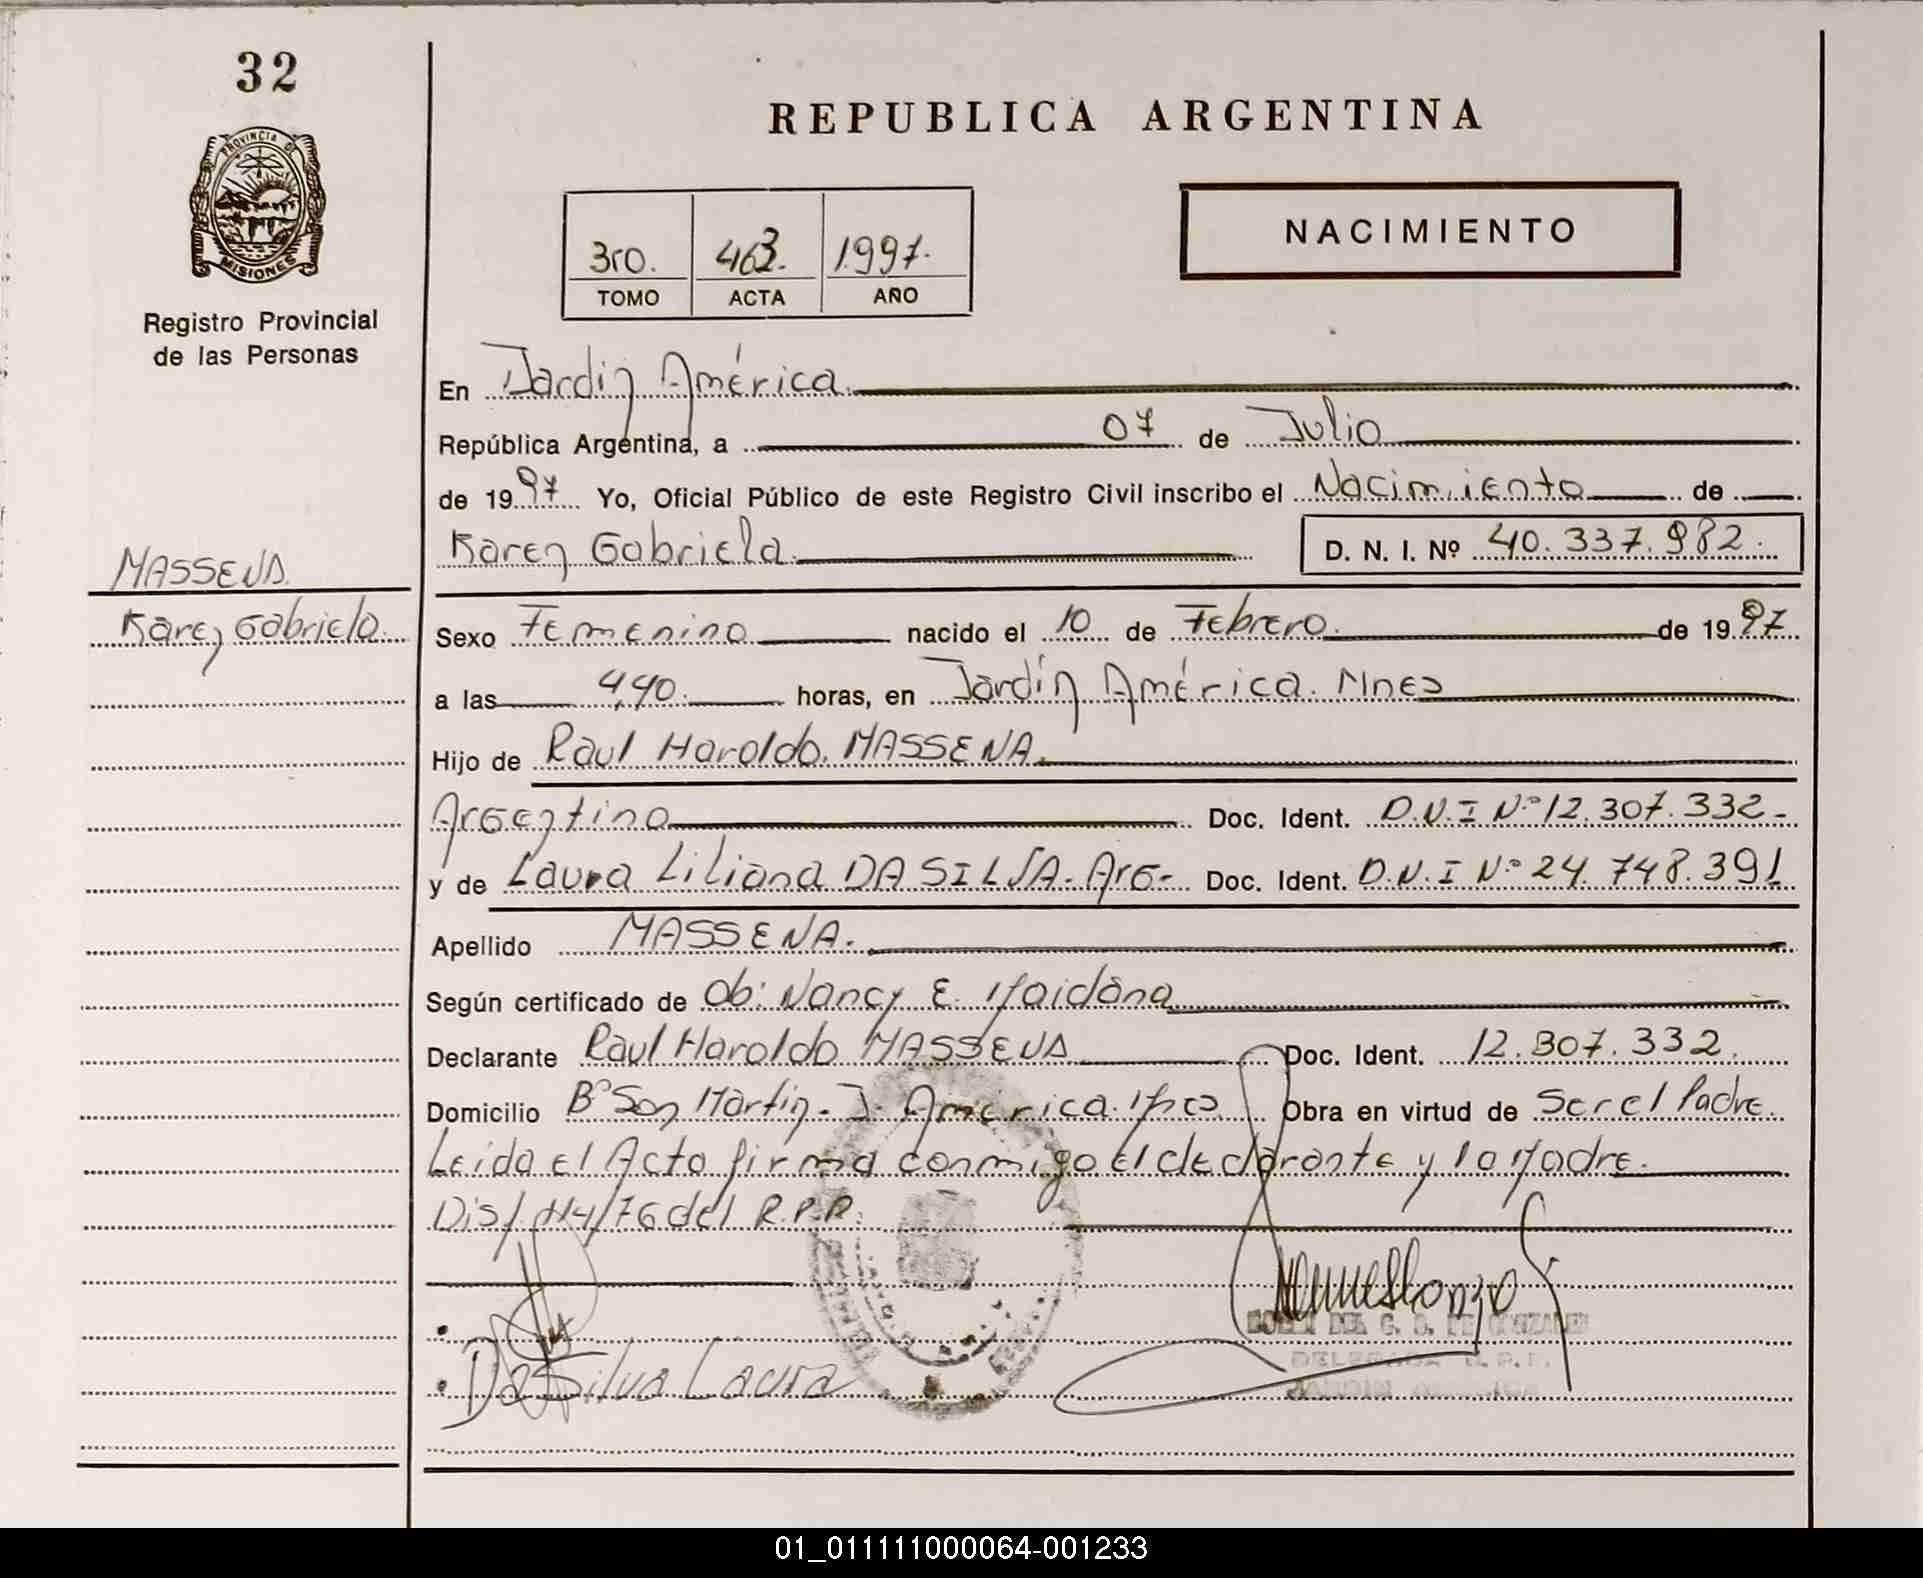 32
PROVINCIA DE
MISIONES
Registro Provincial
de las Personas
MASSENA
Karen Gabriela
REPUBLICA ARGENTINA
NACIMIENTO
3ro. 463. 1997.
TOMO ACTA AÑO
En Jardín América.
República Argentina, a 07 de Julio
de 1997 Yo, Oficial Público de este Registro Civil inscribo el Nacimiento de
Karen Gabriela. D. N. I. Nº 40.337.982.
Sexo Femenino nacido el 10 de Febrero. de 1997
a las 4,40. horas, en Jardín América. Mnes
Hijo de Raul Haroldo MASSENA.
Argentino Doc. Ident. D.N.I Nº 12.307.332-
y de Laura Liliana DA SILVA. Arg- Doc. Ident. D.N.I Nº 24.748.391
Apellido MASSENA.
Según certificado de Ob: Nancy E. Maidana
Declarante Raul Haroldo MASSENA Doc. Ident. 12.307.332.
Domicilio Bº San Martin. J. América. Mnes Obra en virtud de Ser el Padre.
Leida el Acta firma conmigo el declarante y la Madre.
Disp. 114/76 del R.P.P.
Da Silva Laura
DE GONZALEZ
DELEGADA R.P.P.
JARDIN AMERICA
01_011111000064-001233